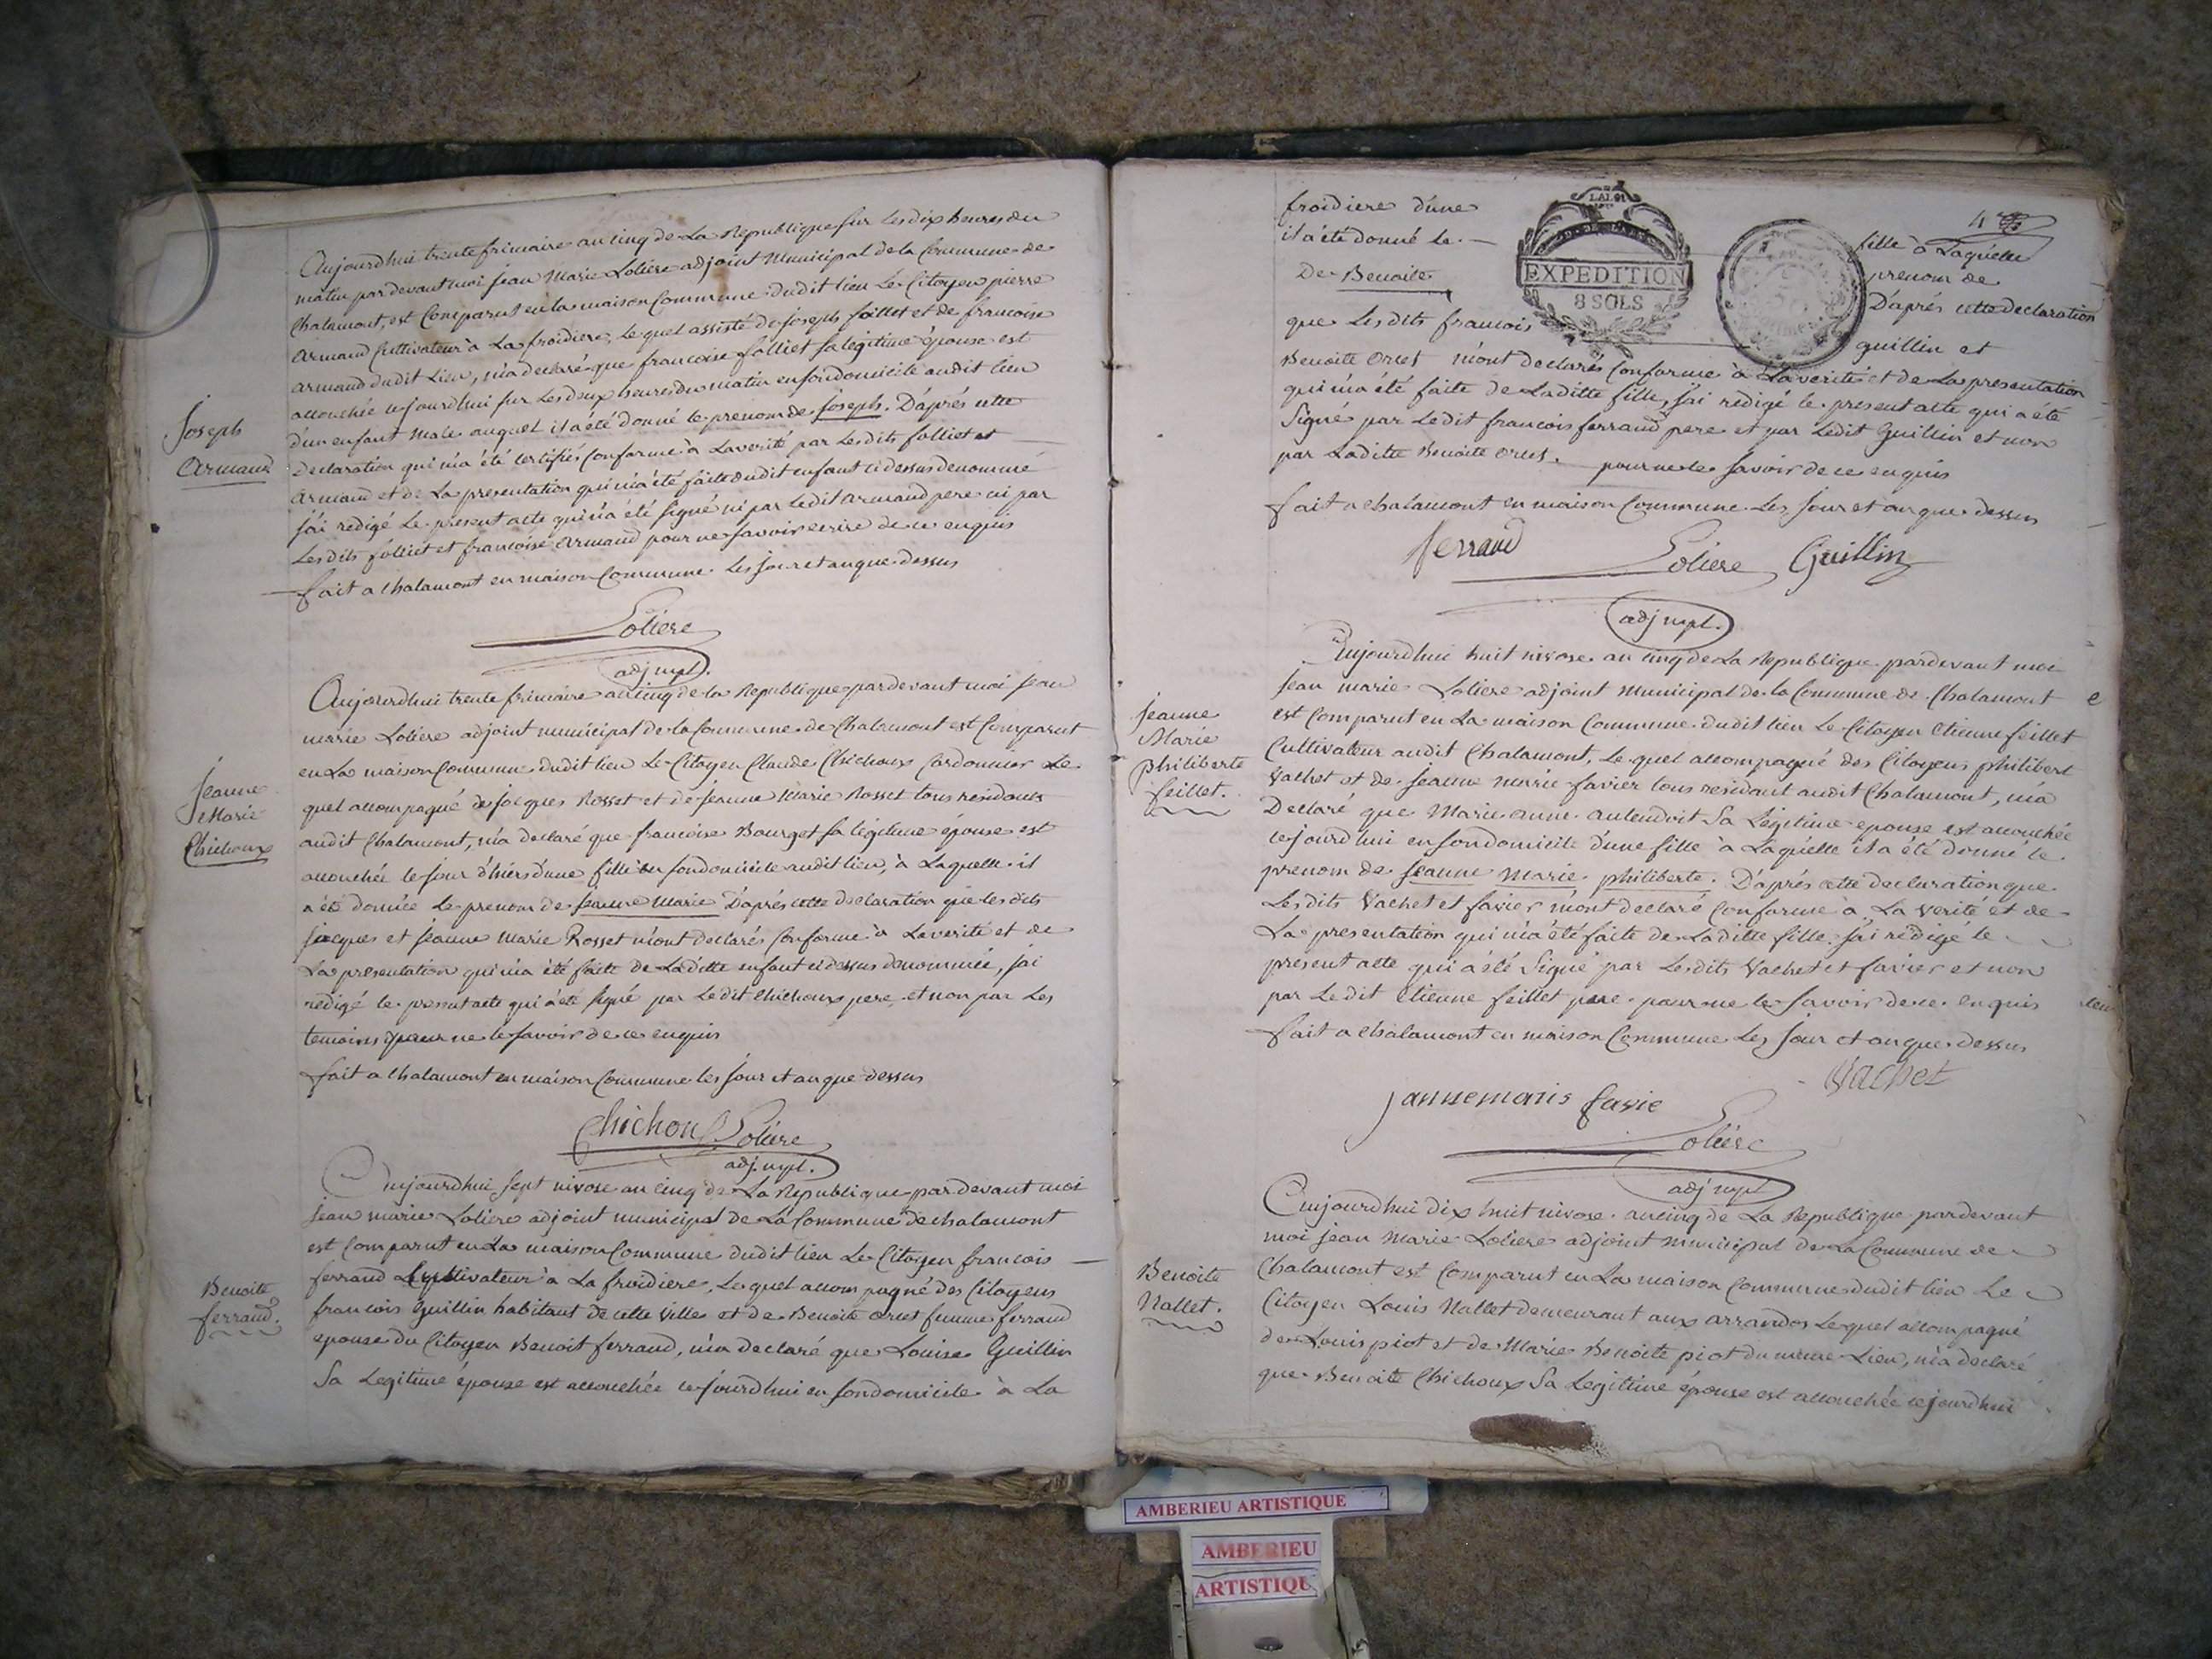 Aujourdhui trente frimaire an cinq de La Republique sur Les dix heures du
matin par devant moi Jean Marie Loliere adjoint Municipal de la Commune de
Chalamont, est Comparut en la maison Commune dudit lieu Le Citoyen pierre
Armand Cultivateur à La froidiere, Le quel assisté de Joseph folliet et de francoise
armand dudit Lieu, m'a declaré que francoise folliet sa légitime épouse est
accouchée cejourdhui sur Les deux heures du matin en son domicile audit lieu
d'un enfant Male auquel il a été donné le prenom de Joseph. D'aprés cette
Declaration qui m'a été certifiés Conforme à La verité par Lesdits folliet et
Armand et de La presentation qui m'a été faite dudit enfant ci dessus denommé
j'ai redigé Le present acte qui n'a été signé ni par Ledit armand pere ni par
Lesdits folliet et francoise armand pour ne savoir ecrire de ce enquis
fait a chalamont en maison Commune Les jour et an que dessus
Joseph
Armand
Loliere
adj mpl.
Aujourdhui trente frimaire an cinq de la Republique par devant moi Jean
marie Loliere adjoint municipal de la Commune de Chalamont est Comparut
en La maison Commune dudit lieu Le Citoyen Claude Chichoux Cordonnier Le
quel accompagné de jacques Rosset et de Jeanne Marie Rosset tous residants
audit Chalamont, m'a declaré que francoise Bourget sa légitime épouse est
accouchée le jour d'hiers d'une fille en son domicile audit lieu, à Laquelle il
a été donnée Le prenom de Jeanne Marie D'aprés cette declaration que les dits
jacques et jeanne Marie Rosset m'ont declarés Conforme à La verité et de
La presentation qui m'a été faite de Ladite enfant ci dessus denommée, j'ai
redigé le present acte qui a été signé par Le dit Chichoux pere et non par Les
temoins pour ne le savoir de ce enquis
fait a Chalamont en maison Commune les jour et an que dessus
Jeanne
Marie
Chichoux
Chichoux Loliere
adj. mpl.
Aujourdhui sept nivose an cinq de La Republique par devant moi
jean marie Loliere adjoint municipal de La Commune de chalamont
est Comparut en La maison Commune dudit lieu Le Citoyen francois
ferrand Cultivateur à La froidiere, Lequel accompagné des Citoyens
francois Guillin habitant de cette ville et de Benoite Orset femme ferrand
epouse du Citoyen Benoit ferrand, m'a declaré que Louise Guillin
Sa Legitime épouse est accouchée cejourdhui en son domicile à La
Benoite
ferrand.
froidiere d'une fille à Laquelle
il a été donné le prenom de
De Benoite D'aprés cette declaration
LA LOI
EXPEDITION
8 SOLS
que Lesdits francois guillin et
Benoite Orset m'ont declarés Conforme à La verité et de La presentation
qui m'a été faite de Laditte fille, j'ai redigé le present acte qui a été
Signé par Ledit francois ferrand pere et par Ledit Guillin et non
par Laditte Benoite Orset. pour ne le savoir de ce enquis
fait a chalamont en maison Commune Les jour et an que dessus
ferrand Loliere Guillin
adj mpl.
Aujourdhui huit nivose an cinq de La Republique par devant moi
Jean marie Loliere adjoint municipal de la Commune de Chalamont
est Comparut en La maison Commune dudit lieu Le Citoyen Etienne feillet
Cultivateur audit Chalamont, Le quel accompagné des Citoyens philibert
Vachet et de jeanne marie favier tous residant audit Chalamont, m'a
Declaré que Marie anne autendoit Sa Legitime epouse est accouchée
cejourd'hui en son domicile d'une fille à Laquelle il a été donné le
prenom de Jeanne Marie philiberte. D'aprés cette declaration que
Lesdits Vachet et favier m'ont declaré Conforme à La verité et de
La presentation qui m'a été faite de Laditte fille. j'ai redigé le
present acte qui a été Signé par Lesdits Vachet et favier et non
par Ledit Etienne feillet pere pour ne le savoir de ce enquis
fait a chalamont en maison Commune Les jour et an que dessus
Jeanne
Marie
philiberte
feillet.
Vachet
jannemaris favie
Loliere
adj mpl
Aujourdhui dix huit nivose an cinq de La Republique par devant
moi jean Marie Loliere adjoint municipal de La Commune de
Chalamont est Comparut en La maison Commune dudit lieu Le
Citoyen Louis Nallet demeurant aux arrandos Lequel accompagné
de Louis piot et de Marie Benoite piot du même Lieu, m'a declaré
que Benoite Chichoux Sa Legitime épouse est accouchée cejourdhui
Benoite
Nallet.
AMBERIEU ARTISTIQUE
AMBERIEU
ARTISTIQU